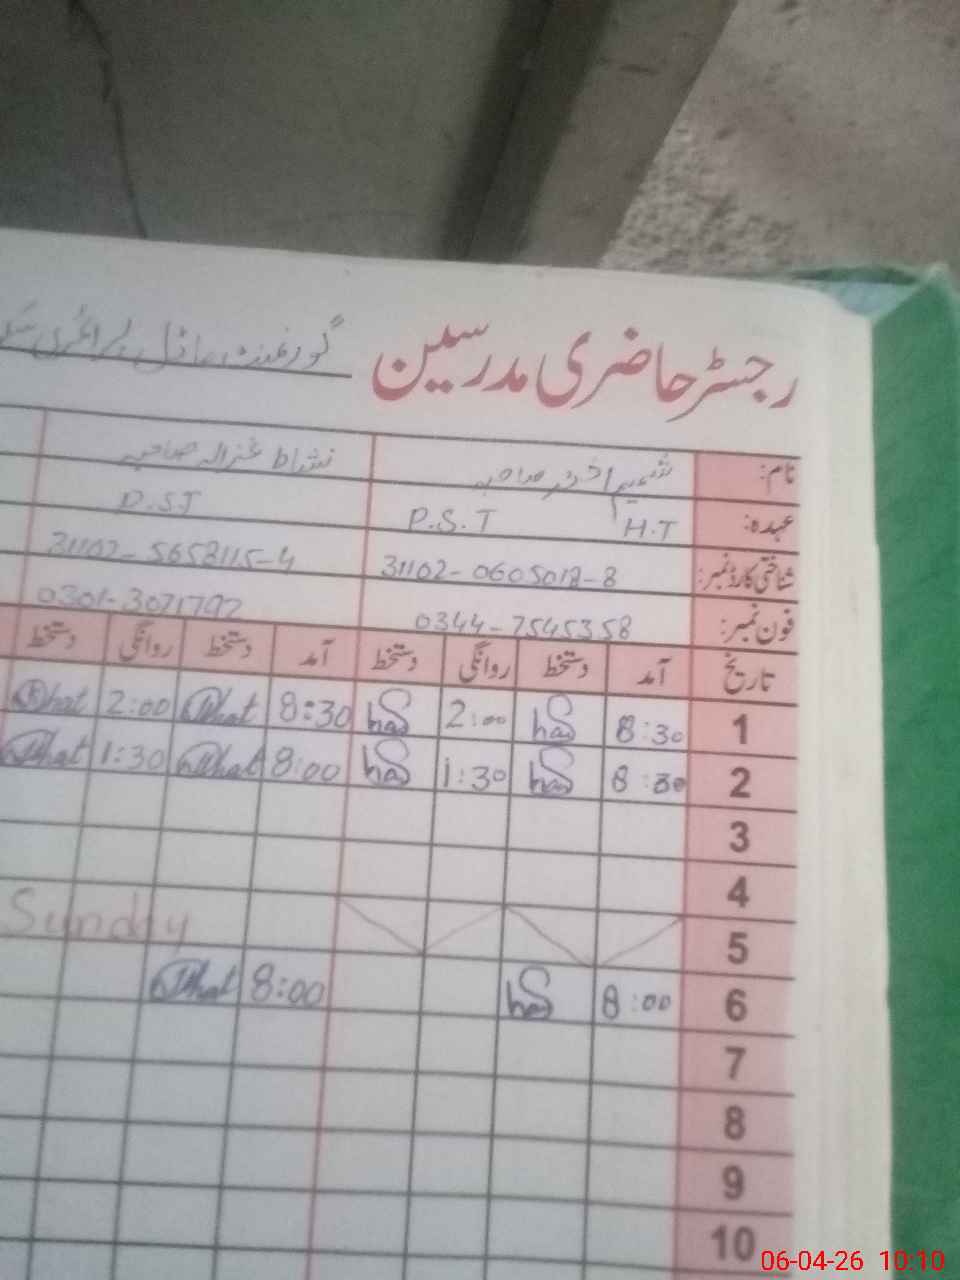 رجسٹر حاضری مدرسین گورنمنٹ ماڈل پرائمری
نام: شمیم اختر صاحبہ نشاط غزالہ صاحبہ
عہدہ: H.T P.S.T P.S.T
شناختی کارڈ نمبر: 31102-0605018-8 31102-5658115-4
فون نمبر: 0344-7545358 0301-3071792
تاریخ آمد دستخط روانگی دستخط آمد دستخط روانگی دستخط
1 8:30 2:00 8:30 2:00
2 8:30 1:30 8:00 1:30
3
4
5 Sunday
6 8:00 8:00
7
8
9
10
06-04-26 10:10